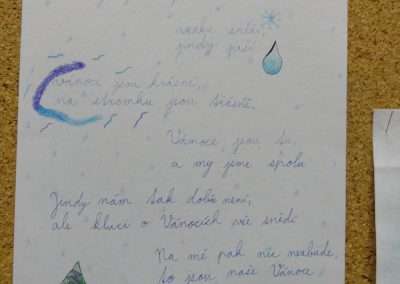 venku sněží,
jindy prší
Vánoce jsou krásné,
na stromku jsou třásně.
Vánoce jsou tu,
a my jsme spolu
Jindy nám tak dobře není,
ale kluci o Vánocích vše snědí
Na mé pak nic nezbude,
to jsou naše Vánoce